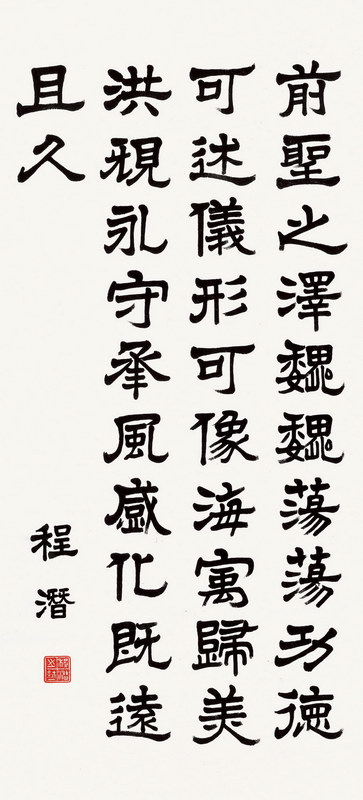 前聖之澤魏魏蕩蕩功德
可述儀形可像海寓歸美
洪規永守承風感化既遠
且久
程潛